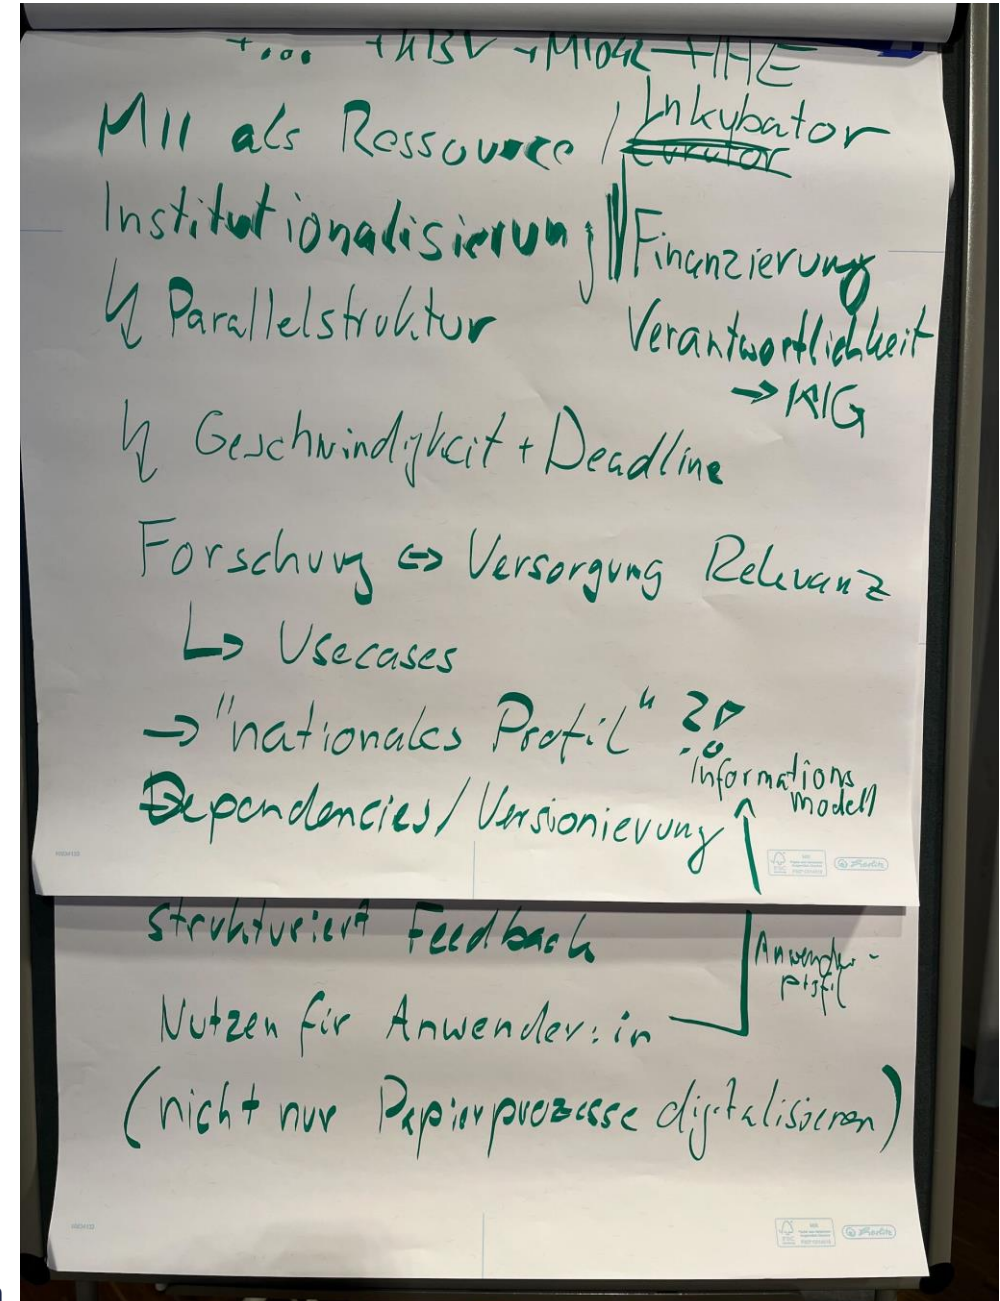 +... + KBV + MIO42 + IHE
MII als Ressource / Inkubator
curator
Institutionalisierung
Finanzierung
↯ Parallelstruktur
Verantwortlichkeit
→ KIG
↯ Geschwindigkeit + Deadline
Forschung ⇔ Versorgung Relevanz
↳ Usecases
→ "nationales Profil"
Informations
modell
Dependencies / Versionierung
strukturiert Feedback
Anwender-
profil
Nutzen für Anwender:in
(nicht nur Papierprozesse digitalisieren)